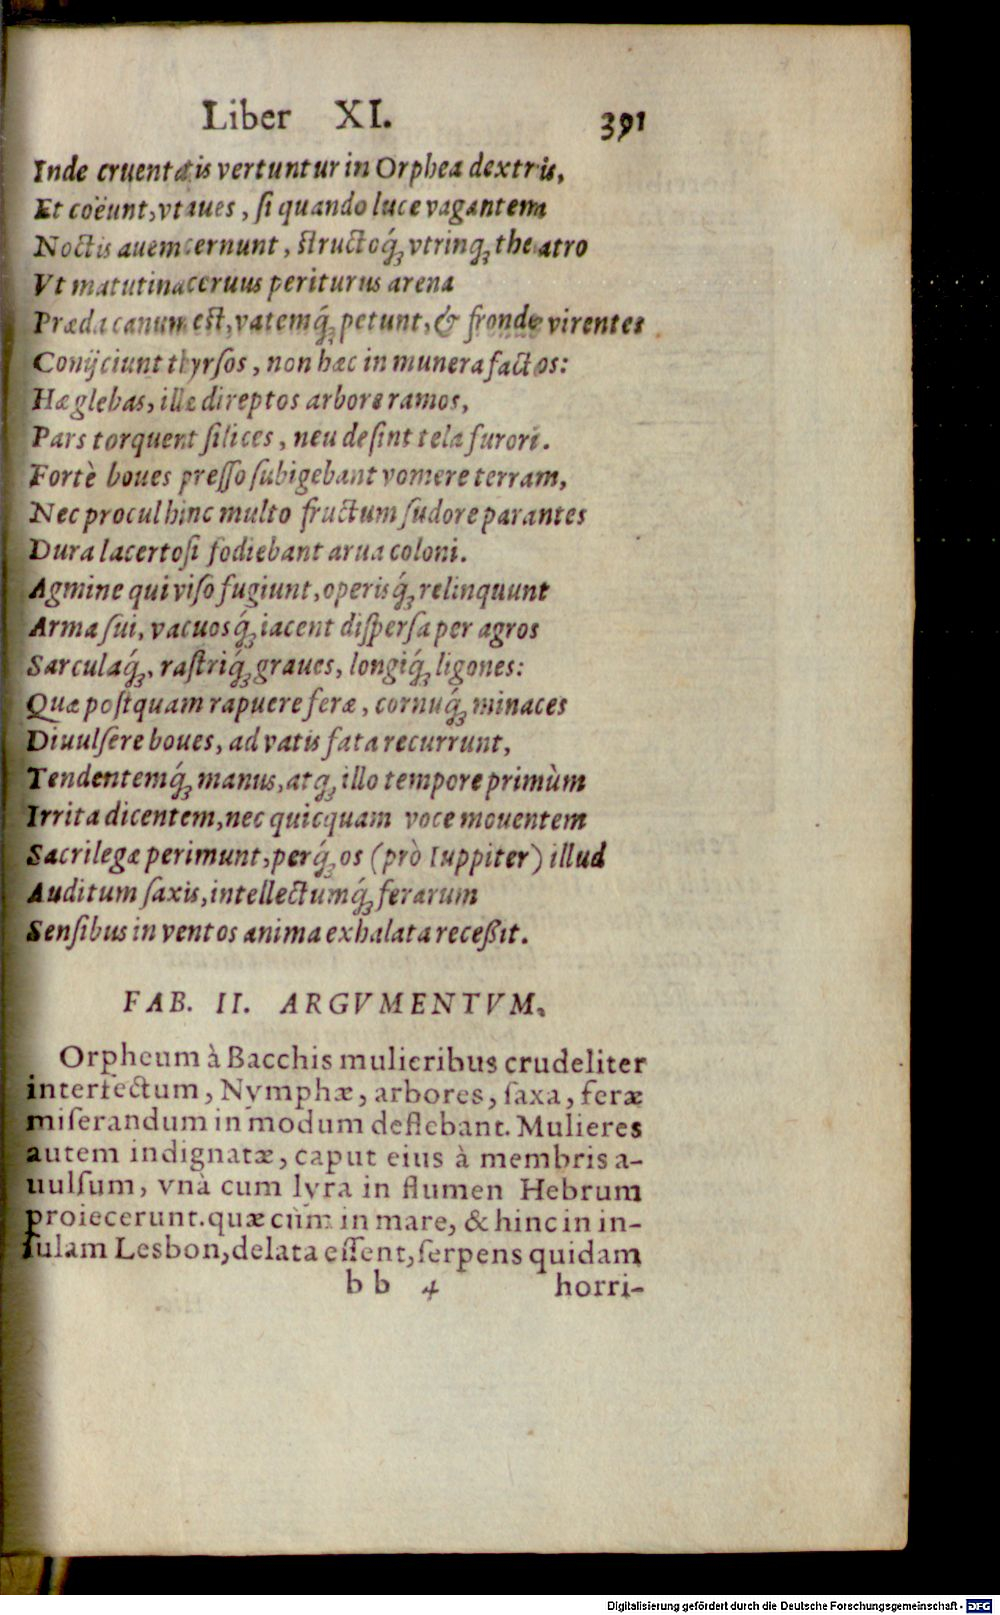 Liber XI. 391
Inde cruentatis vertuntur in Orphea dextris,
Et coëunt, vt aues, ſi quando luce vagantem
Noctis auem cernunt, ſtructoq́ꝫ vtrinqꝫ theatro
Vt matutina ceruus periturus arena
Præda canum eſt, vatemq́ꝫ petunt, & fronde virentes
Coniȷciunt thyrſos, non hæc in munera factos:
Hæ glebas, illæ direptos arbore ramos,
Pars torquent ſilices, neu deſint tela furori.
Fortè boues preſſo ſubigebant vomere terram,
Nec procul hinc multo fructum ſudore parantes
Dura lacertoſi fodiebant arua coloni.
Agmine qui viſo fugiunt, operisq́ꝫ relinquunt
Arma ſui, vacuosq́ꝫ iacent diſperſa per agros
Sarculaq́ꝫ, raſtriq́ꝫ graues, longiq́ꝫ ligones:
Quæ poſtquam rapuere feræ, cornuq́ꝫ minaces
Diuulſere boues, ad vatis fata recurrunt,
Tendentemq́ꝫ manus, atqꝫ illo tempore primùm
Irrita dicentem, nec quicquam voce mouentem
Sacrilegæ perimunt, perq́ꝫ os (prò Iuppiter) illud
Auditum ſaxis, intellectumq́ꝫ ferarum
Senſibus in ventos anima exhalata receßit.
FAB. II. ARGVMENTVM.
Orpheum à Bacchis mulieribus crudeliter
interfectum, Nymphæ, arbores, ſaxa, feræ
miſerandum in modum deflebant. Mulieres
autem indignatæ, caput eius à membris a-
uulſum, vnà cum lyra in flumen Hebrum
proiecerunt. quæ cùm in mare, & hinc in in-
ſulam Lesbon, delata eſſent, ſerpens quidam
bb 4 horri-
Digitalisierung gefördert durch die Deutsche Forschungsgemeinschaft - DFG